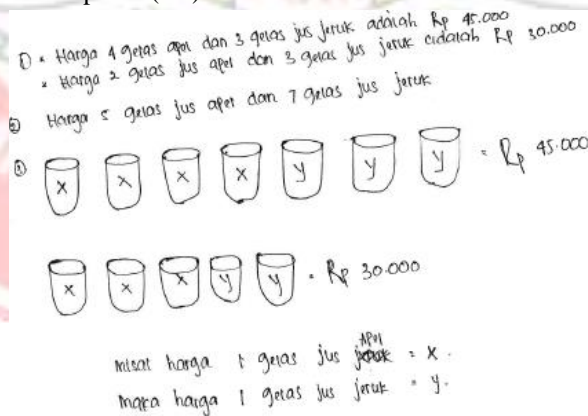 ① • Harga 4 gelas apel dan 3 gelas jus jeruk adalah Rp 45.000
• Harga 2 gelas jus apel dan 3 gelas jus jeruk adalah Rp 30.000
② Harga 5 gelas jus apel dan 7 gelas jus jeruk
③ x x x x y y y = Rp 45.000
x x x y y = Rp 30.000
misal harga 1 gelas jus Apel = x.
maka harga 1 gelas jus jeruk = y.